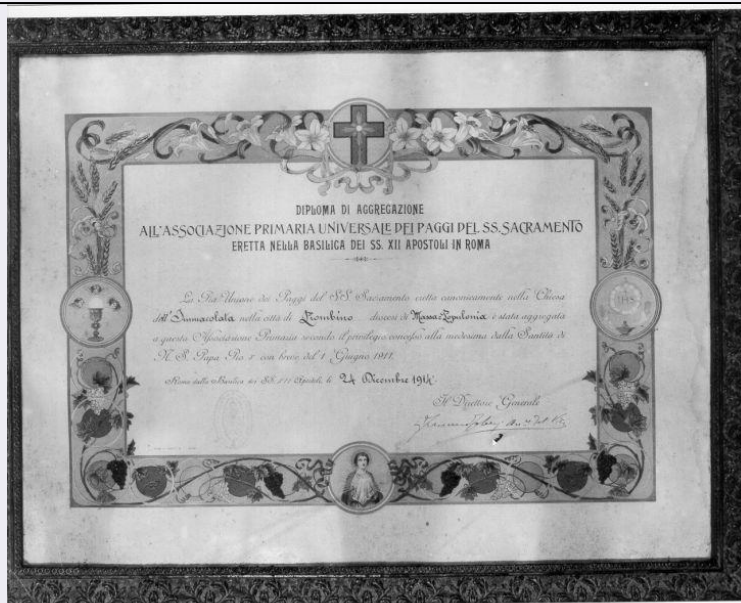 DIPLOMA DI AGGREGAZIONE
ALL'ASSOCIAZIONE PRIMARIA UNIVERSALE DEI PAGGI DEL SS. SACRAMENTO
ERETTA NELLA BASILICA DEI SS. XII APOSTOLI IN ROMA
La Pia Unione dei Paggi del SS. Sacramento eretta canonicamente nella Chiesa
dell'Immacolata nella città di Piombino diocesi di Massa-Populonia è stata aggregata
a questa Associazione Primaria secondo il privilegio concesso alla medesima dalla Santità di
N. S. Papa Pio X con breve del 1 Giugno 1911.
Roma dalla Basilica dei SS. XII Apostoli, li 24 Dicembre 1914.
Il Direttore Generale